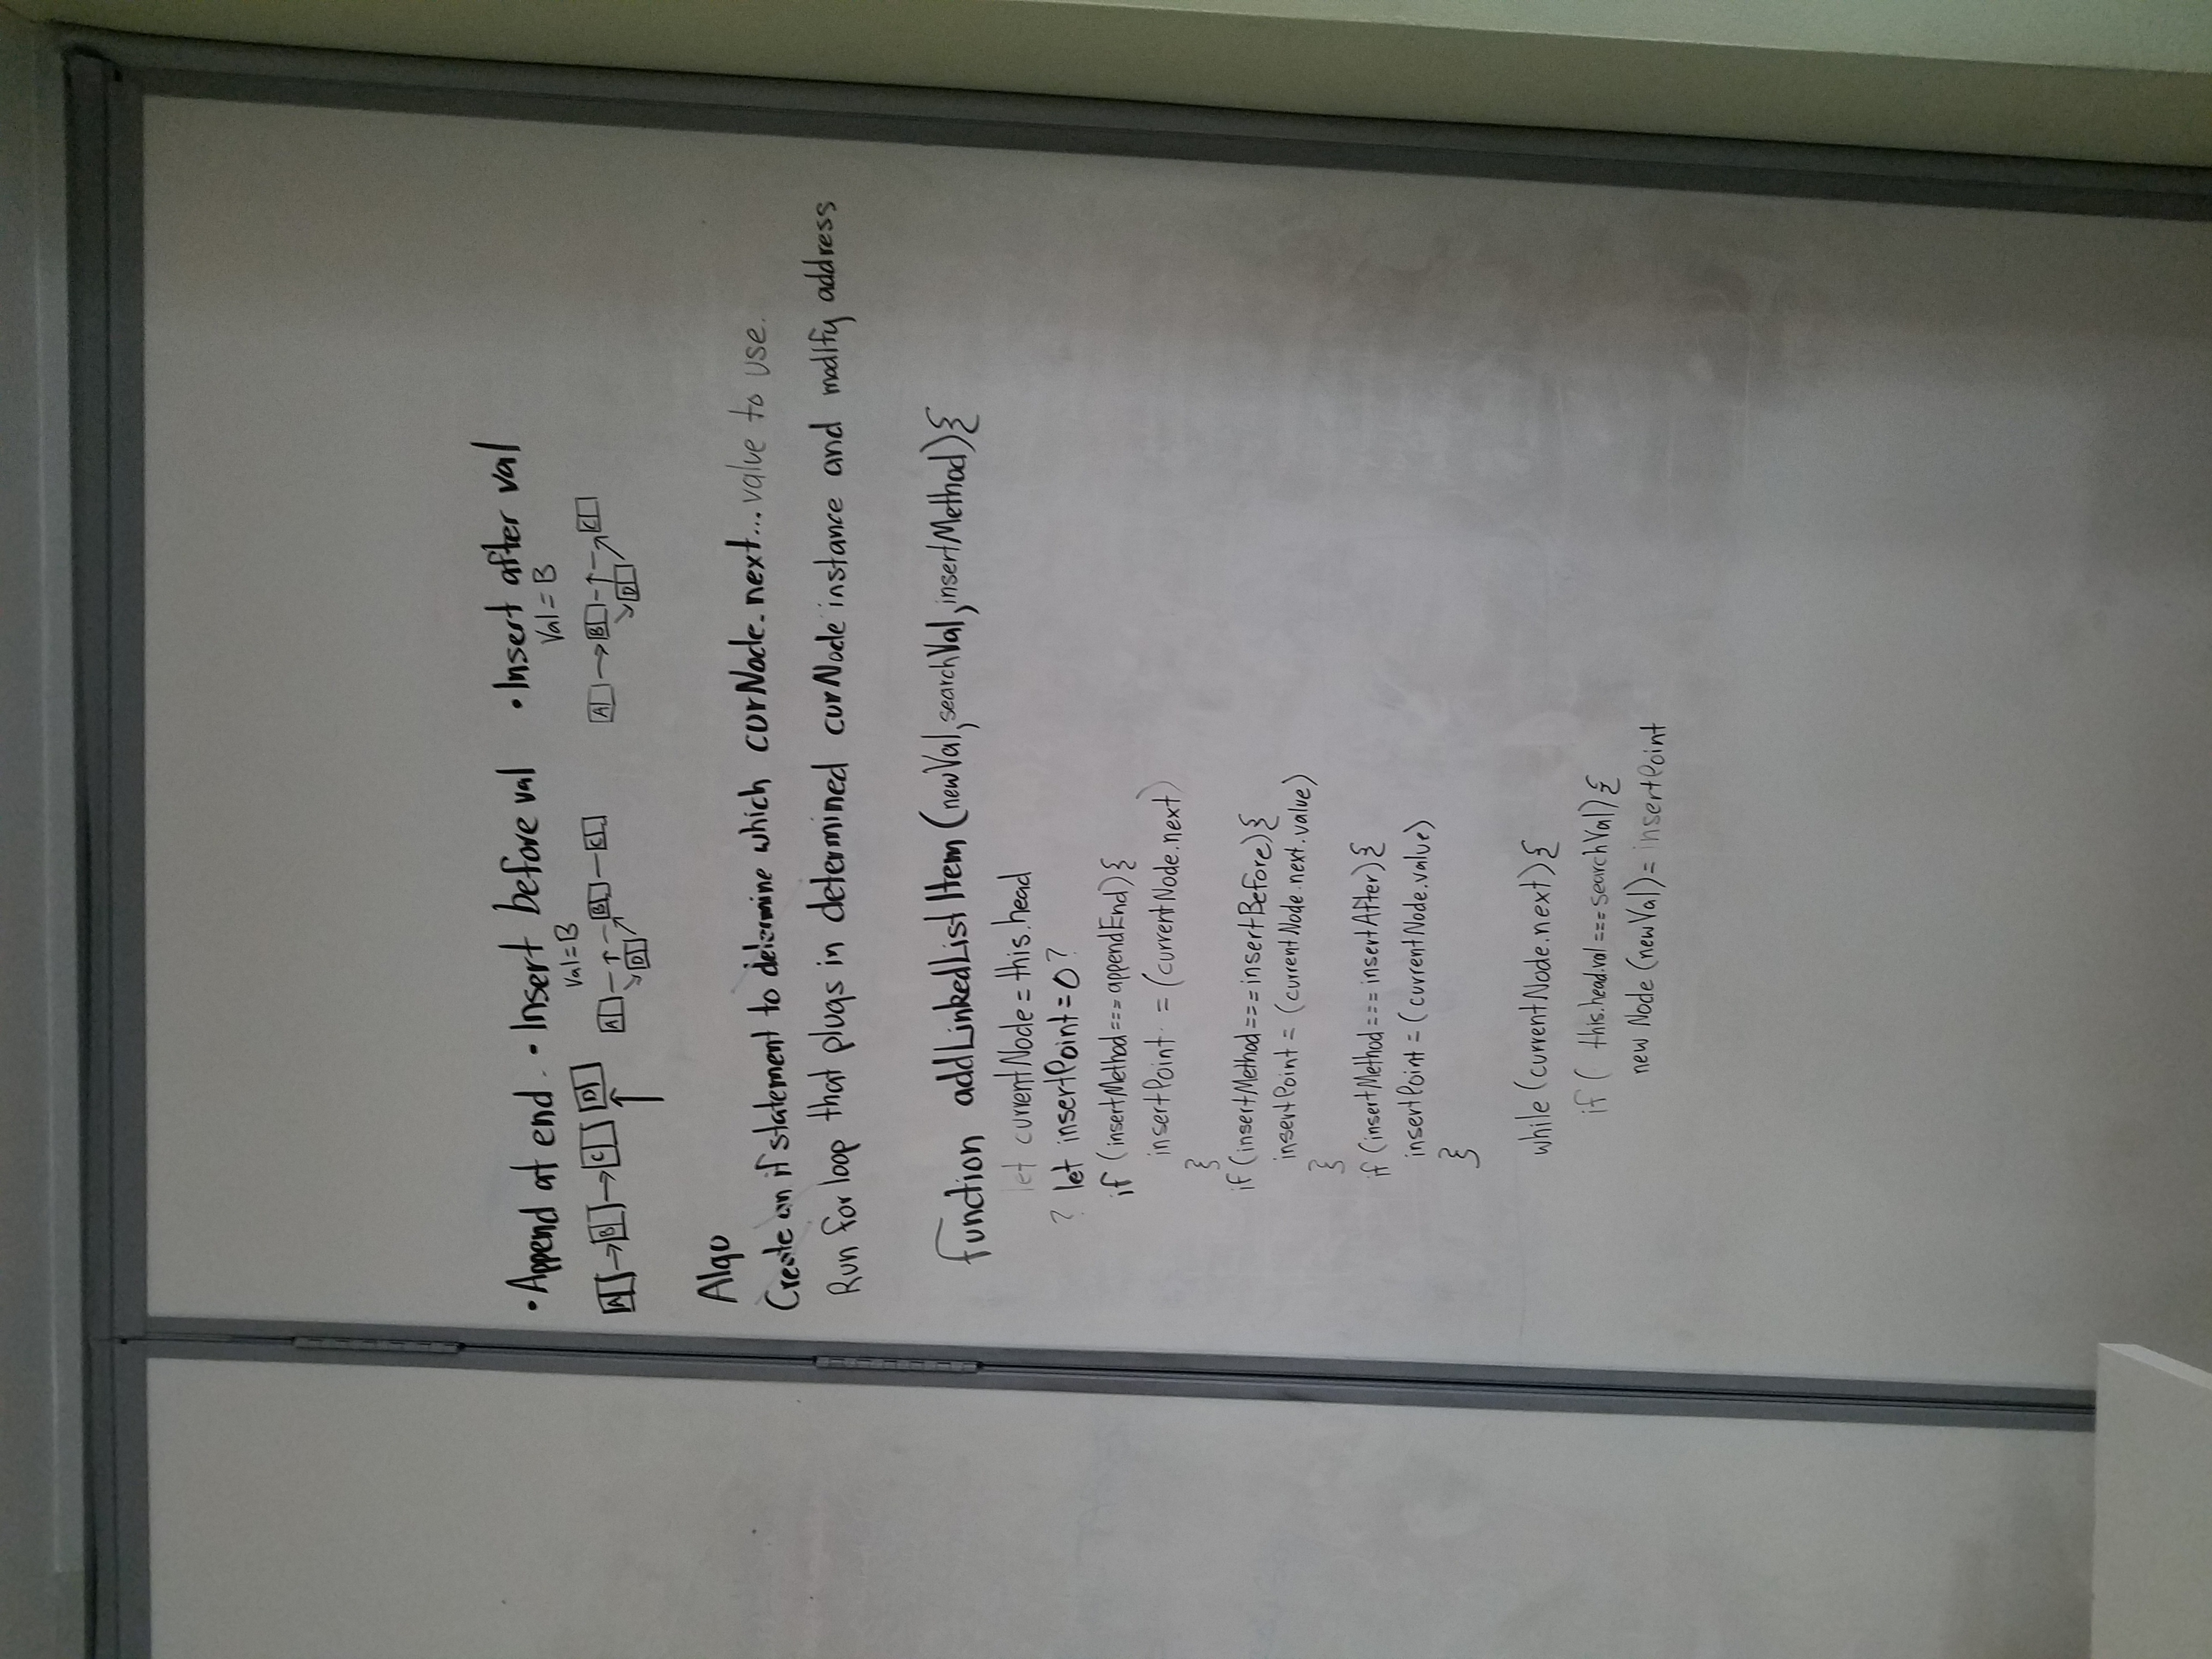 • Append at end. • Insert before val • Insert after val
Val=B Val=B
A → B → C D A B C A → B C
D D
Algo
Create an if statement to determine which curNode.next... value to use.
Run for loop that plugs in determined curNode instance and modify address
function addLinkedListItem (newVal, searchVal, insertMethod){
let currentNode = this.head
? let insertPoint = 0 ?
if (insertMethod === appendEnd){
insertPoint = (currentNode.next)
}
if (insertMethod === insertBefore){
insertPoint = (currentNode.next.value)
}
if (insertMethod === insertAfter){
insertPoint = (currentNode.value)
}
while (currentNode.next){
if ( this.head.val === searchVal){
new Node (newVal) = insertPoint